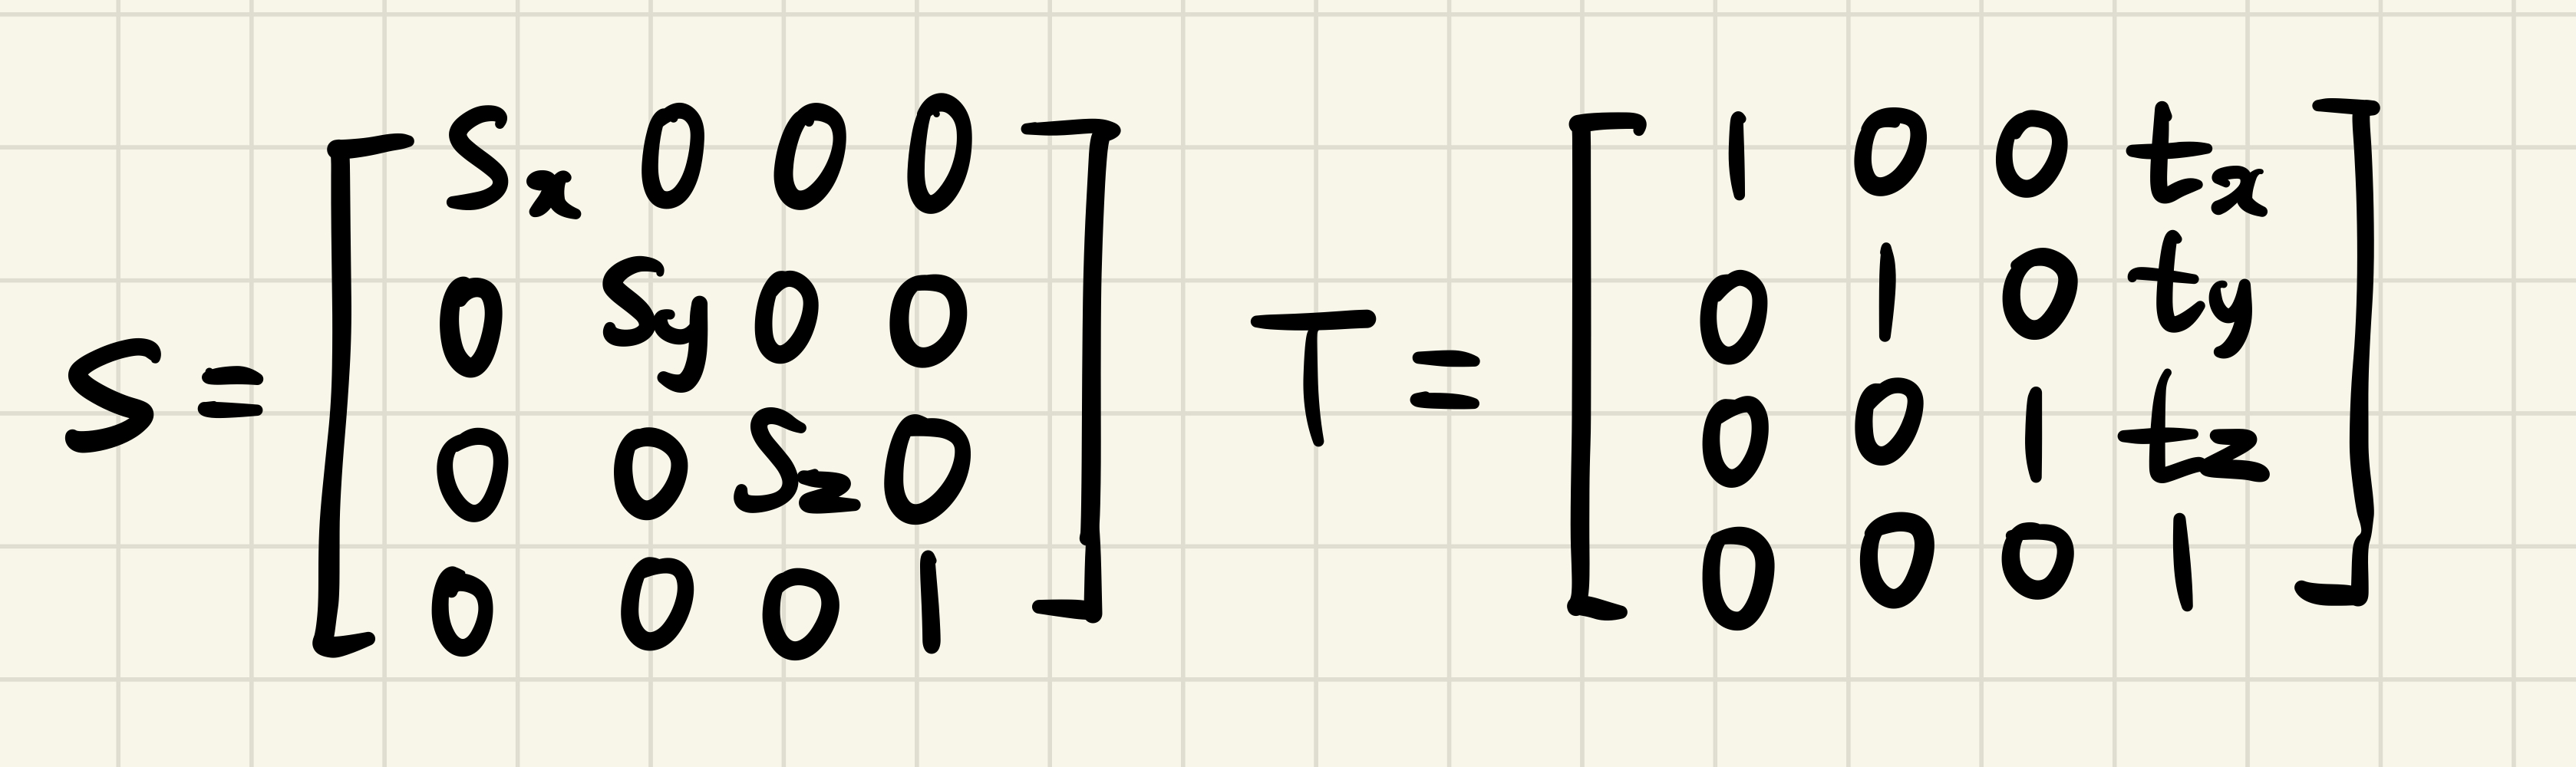 S = [ Sx 0 0 0
0 Sy 0 0
0 0 Sz 0
0 0 0 1 ]
T = [ 1 0 0 tx
0 1 0 ty
0 0 1 tz
0 0 0 1 ]